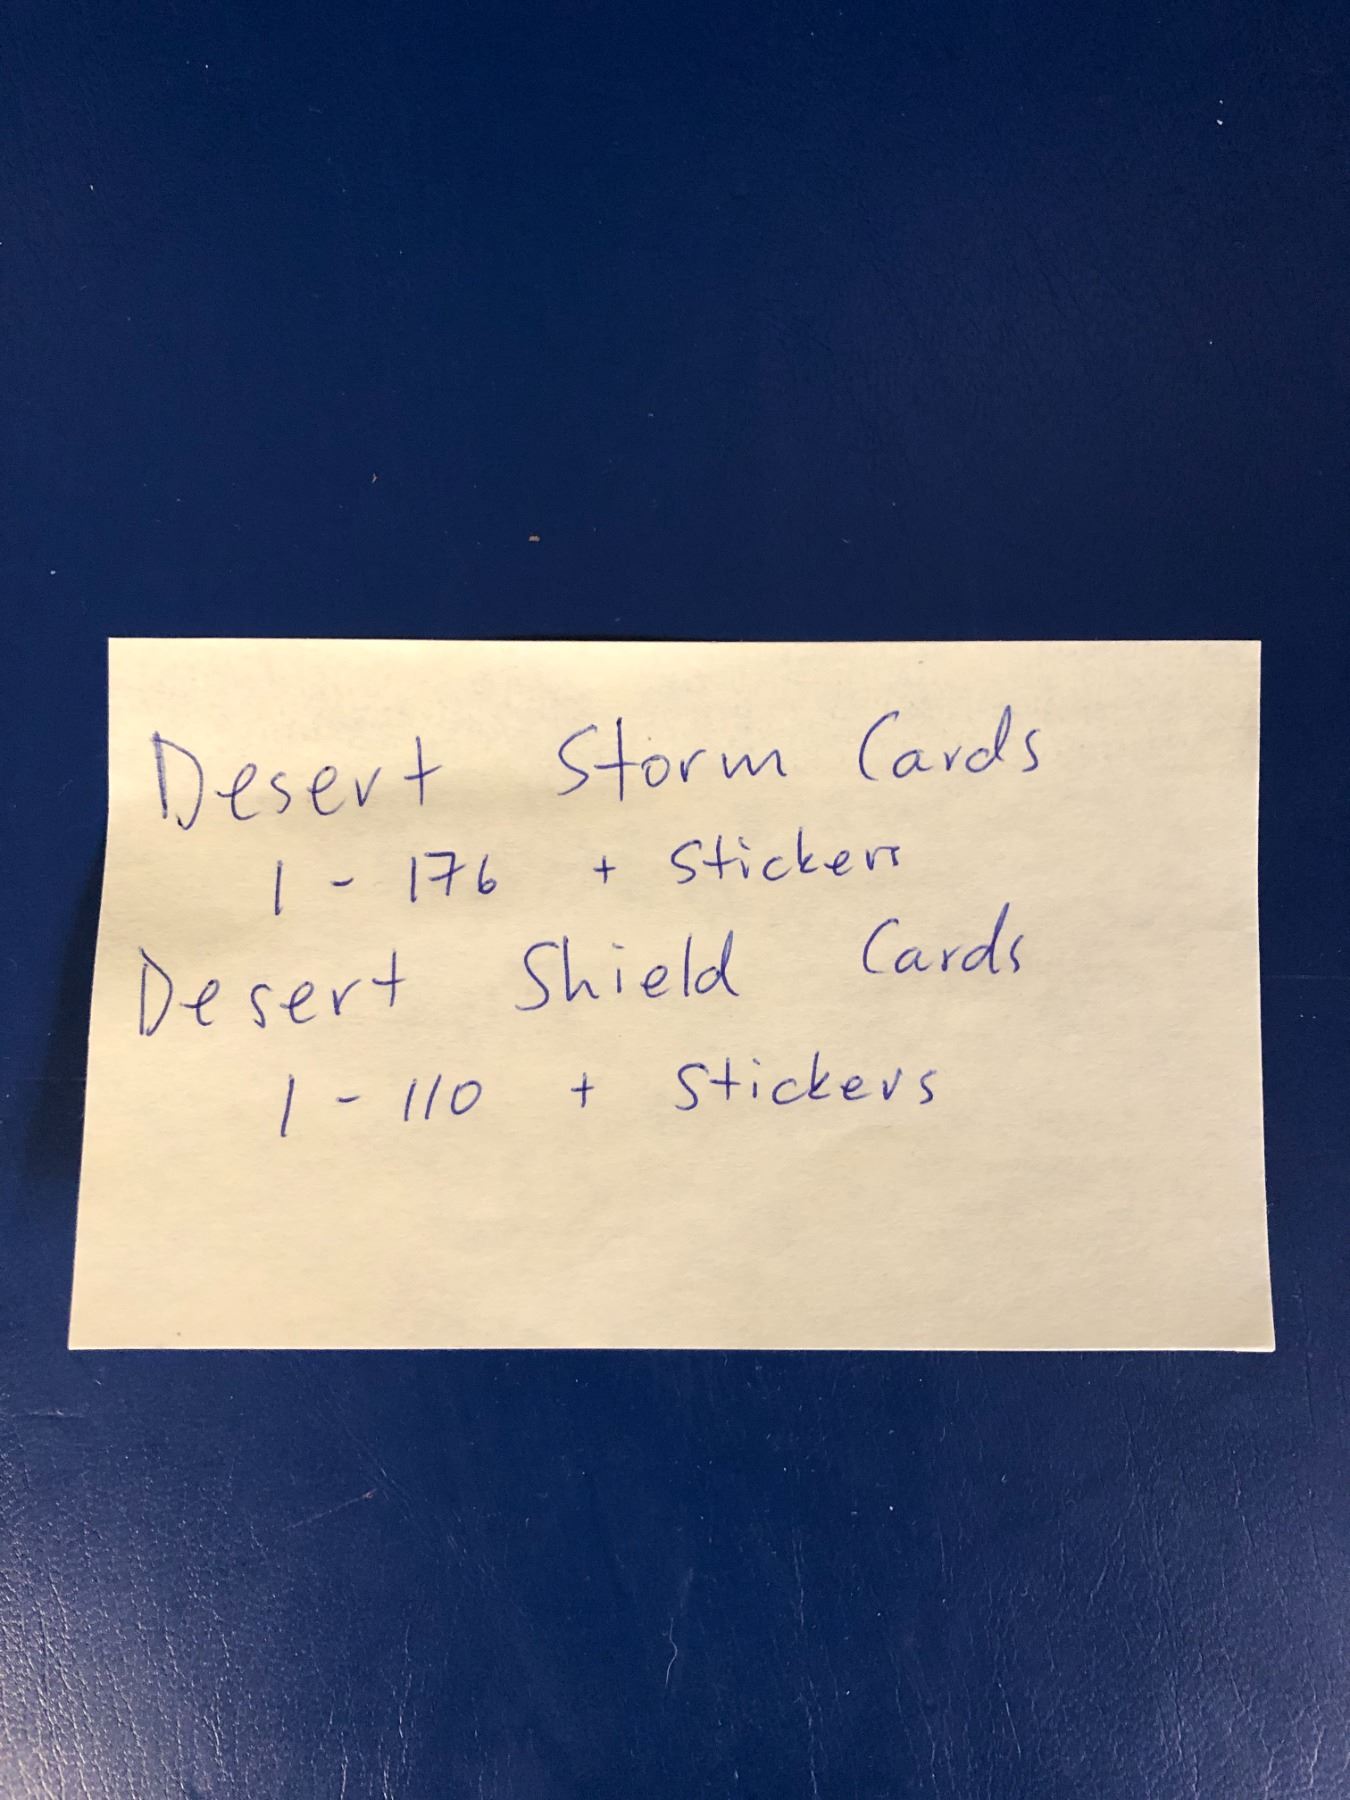 Desert Storm Cards
1 - 176 + Stickers
Desert Shield Cards
1 - 110 + Stickers